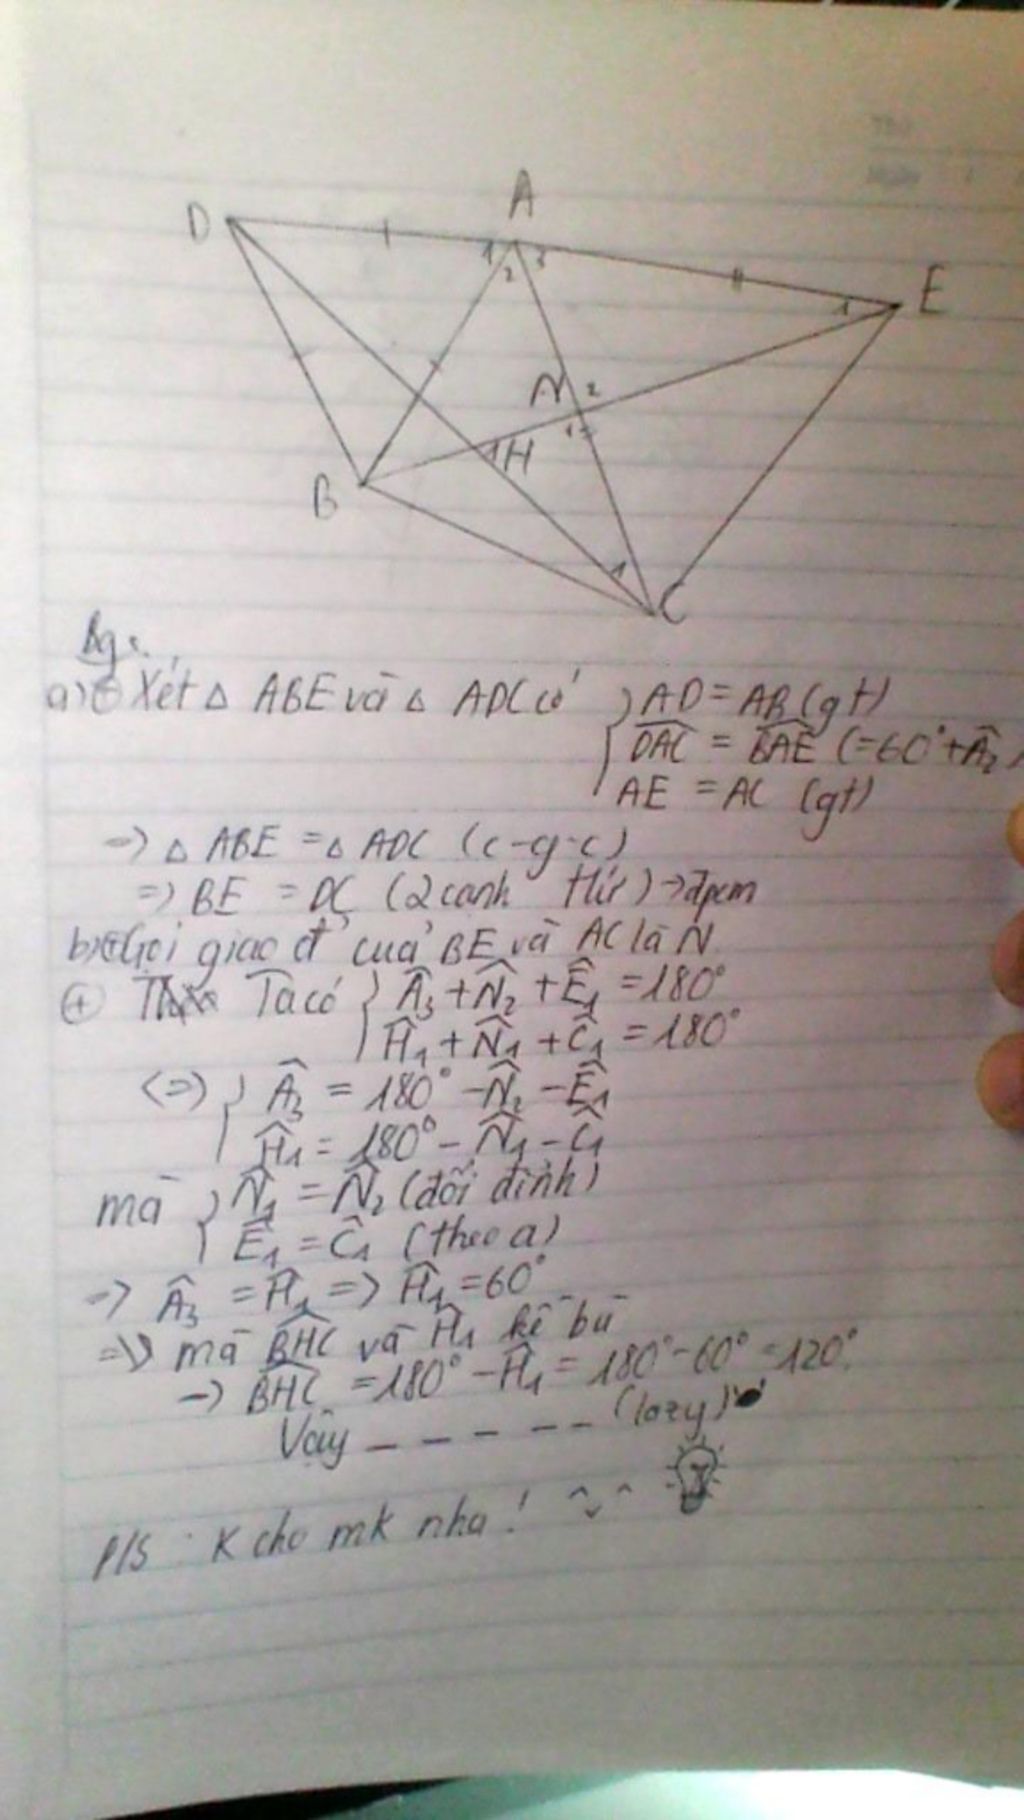 D A E
1 2 3 1
N 2
1
B 1 H
1 C
Bg:
a) + Xét △ ABE và △ ADC có } AD = AB (gt)
DAC = BAE (= 60° + Â2)
AE = AC (gt)
-> △ ABE = △ ADC (c-g-c)
=> BE = DC (2 cạnh tứ) -> đpcm
b) + Gọi giao đ' của BE và AC là N
+ Ta có } Â3 + N̂2 + Ê1 = 180°
Ĥ1 + N̂1 + Ĉ1 = 180°
(=>) } Â3 = 180° - N̂2 - Ê1
Ĥ1 = 180° - N̂1 - Ĉ1
mà } N̂1 = N̂2 (đối đỉnh)
Ê1 = Ĉ1 (theo a)
-> Â3 = Ĥ1 => Ĥ1 = 60°
=> mà BHC và Ĥ1 kề bù
-> BHC = 180° - Ĥ1 = 180° - 60° = 120°.
Vậy _ _ _ _ _ (lazy)
P/S : K cho mk nha! ^ ^